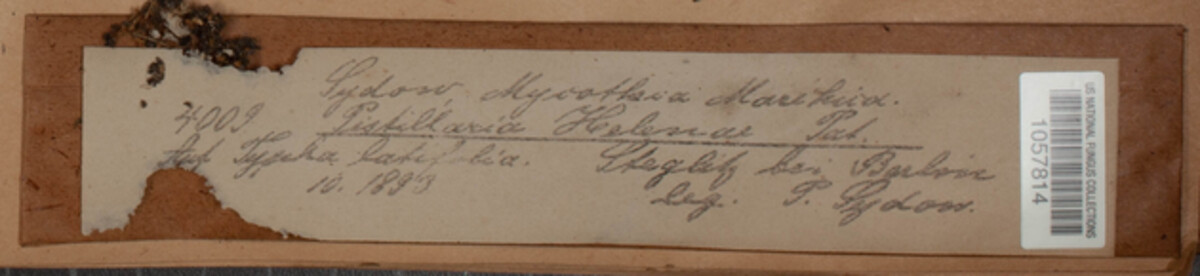 Sydow, Mycotheca Marchica.
4009 Pistillaria Helenae Pat.
Auf Typha latifolia. Steglitz bei Berlin
10. 1893 leg. P. Sydow.
US NATIONAL FUNGUS COLLECTIONS
1057814